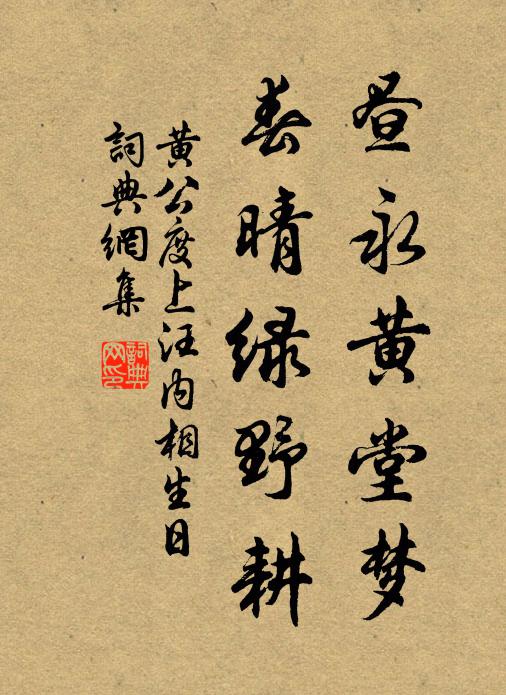 昼永黄堂梦
春晴绿野耕
黄公度上汪内相生日
詞典網集
詞典网印